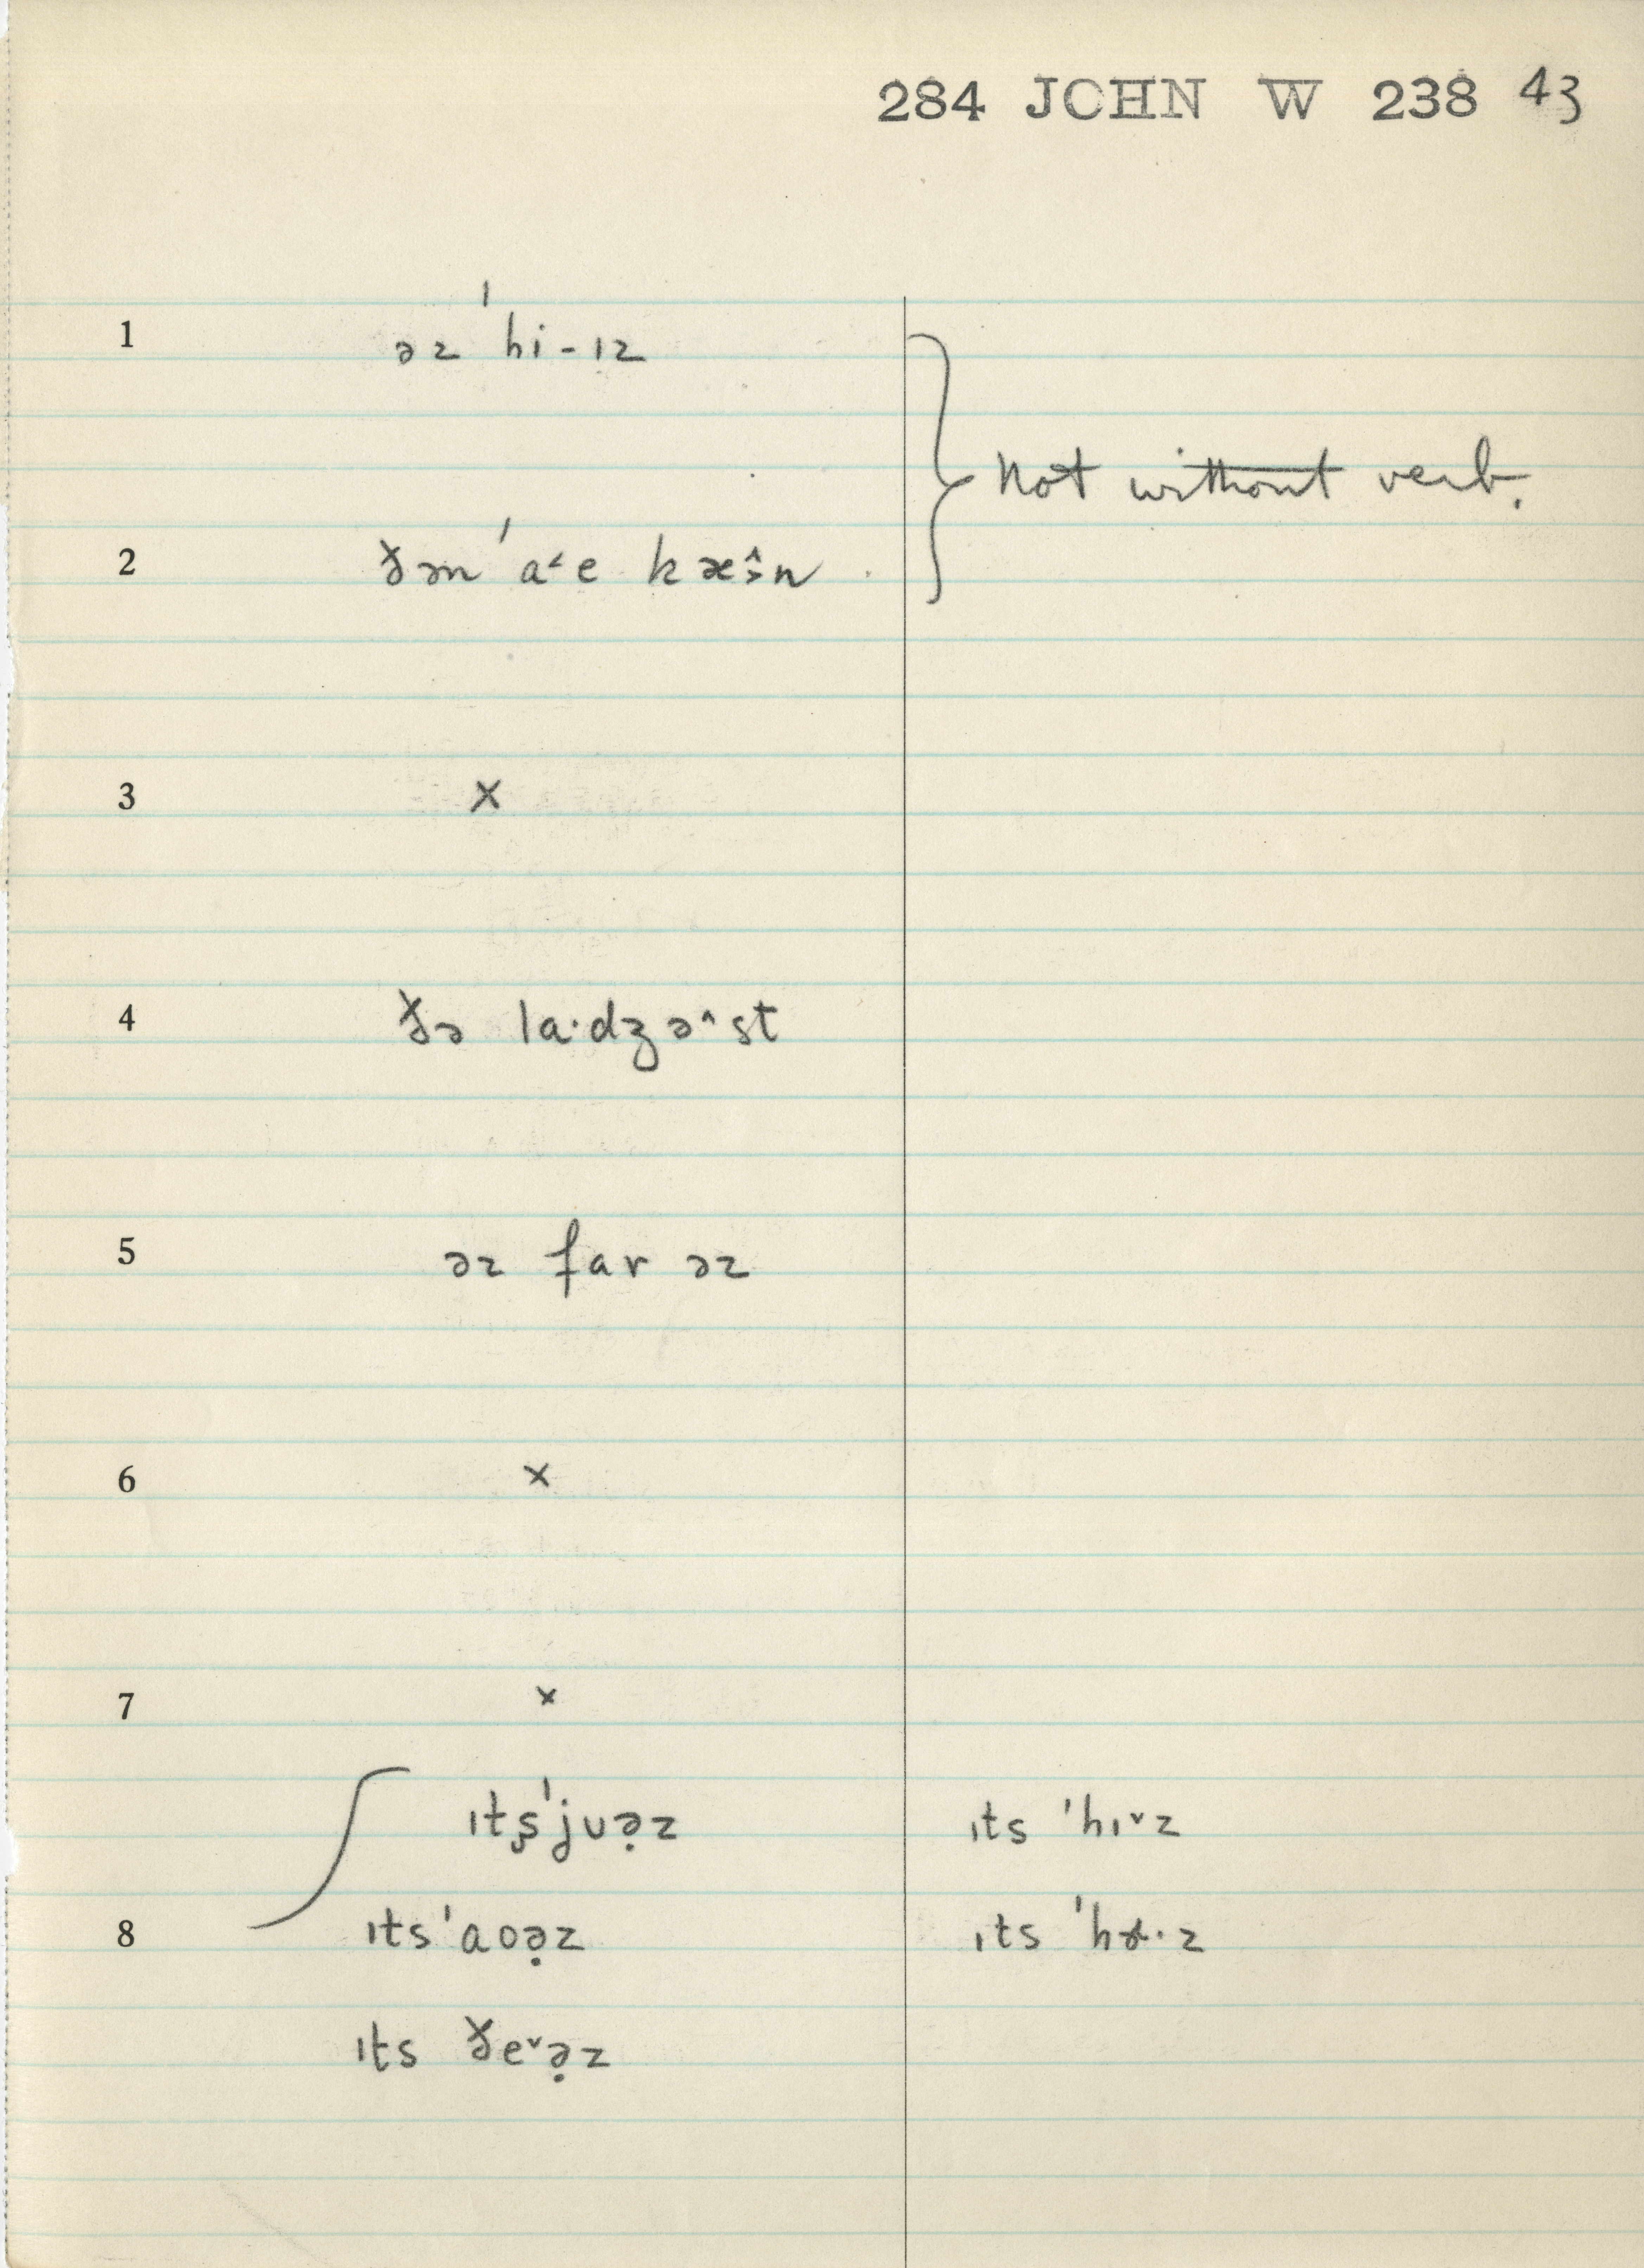 284 JOHN W 238 43
1 əz ˈhi-ɪz
Not without verb.
2 ðən ˈa˂e kæ̂ᵊn
3 ×
4 ðə la·dʒə^st
5 əz far əz
6 ×
7 ×
ɪtṣˈjʊə̣z ɪts ˈhɪ˅z
8 ɪtsˈaoə̣z ɪts ˈhɚ·z
ɪts ðe˅ə̣z